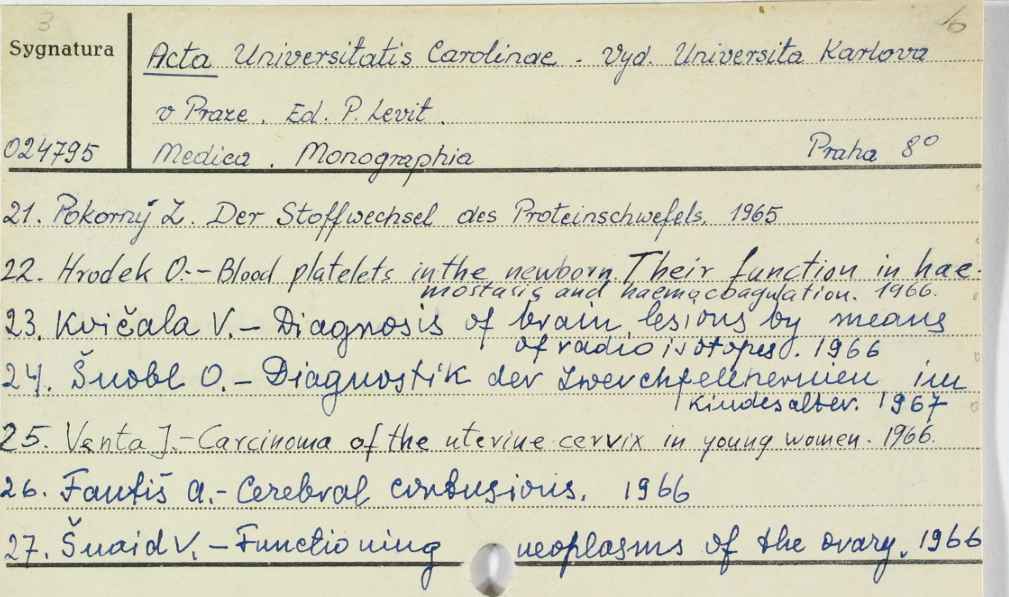 3
Sygnatura
Acta Universitatis Carolinae. Vyd. Universita Karlova
v Praze. Ed. P. Levit.
024795
Medica. Monographia Praha 8°
21. Pokorný Z. Der Stoffwechsel des Proteinschwefels. 1965
22. Hrodek O. - Blood platelets in the newborn. Their function in hae-
mostasis and haemacoagulation. 1966.
23. Kvičala V. - Diagnosis of brain lesions by means
of radio isotopes. 1966
24. Šnobl O. - Diagnostik der Zwerchfellhernien im
Kindesalter. 1967
25. Venta J. - Carcinoma of the uterine cervix in young women. 1966.
26. Fantiš A. - Cerebral contusions. 1966
27. Šnaid V. - Functioning neoplasms of the ovary. 1966